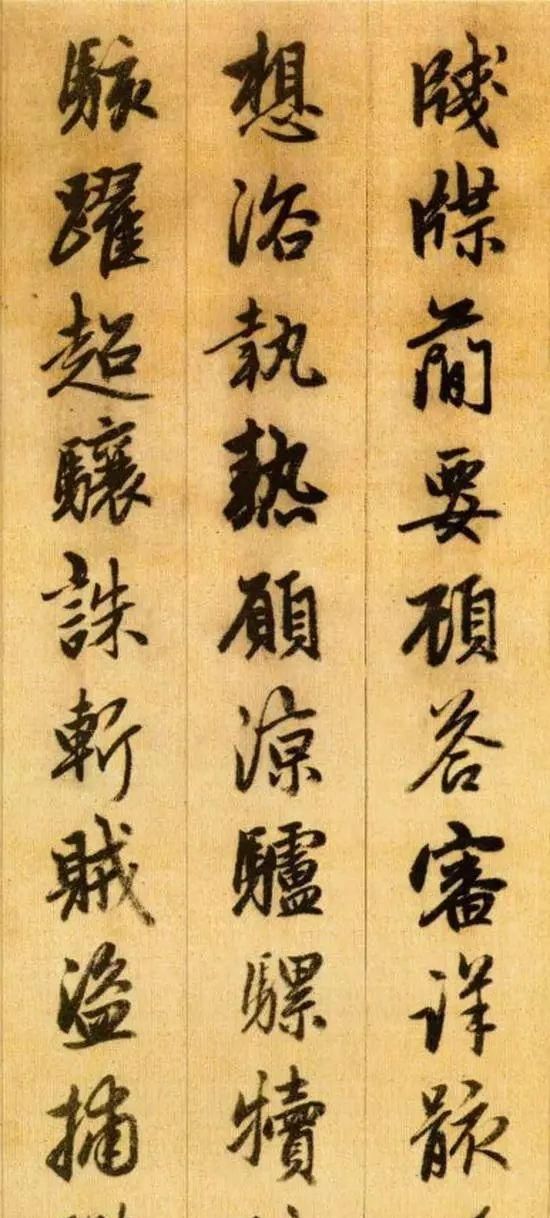 牋牒簡要顧答審詳骸
想浴執熱願涼驢騾犢
駭躍超驤誅斬賊盜捕